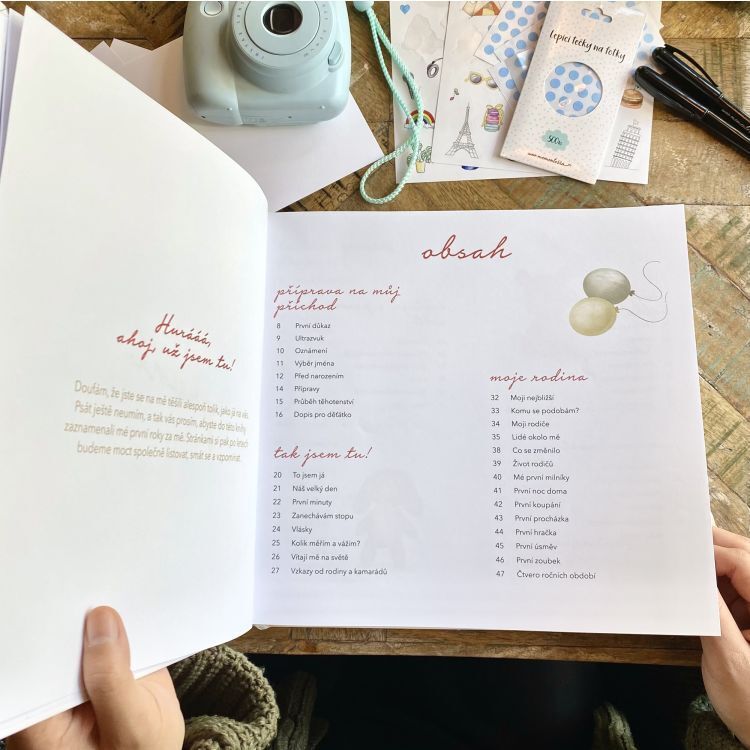 lepicí tečky na fotky
500ks
Hurááá,
ahoj, už jsem tu!
Doufám, že jste se na mě těšili alespoň tolik, jako já na vás.
Psát ještě neumím, a tak vás prosím, abyste do této knihy
zaznamenali mé první roky za mě. Stránkami si pak po letech
budeme moct společně listovat, smát se a vzpomínat.
obsah
příprava na můj
příchod
8 První důkaz
9 Ultrazvuk
10 Oznámení
11 Výběr jména
12 Před narozením
14 Přípravy
15 Průběh těhotenství
16 Dopis pro děťátko
tak jsem tu!
20 To jsem já
21 Náš velký den
22 První minuty
23 Zanechávám stopu
24 Vlásky
25 Kolik měřím a vážím?
26 Vítají mě na světě
27 Vzkazy od rodiny a kamarádů
moje rodina
32 Moji nejbližší
33 Komu se podobám?
34 Moji rodiče
35 Lidé okolo mě
38 Co se změnilo
39 Život rodičů
40 Mé první milníky
41 První noc doma
42 První koupání
43 První procházka
44 První hračka
45 První úsměv
46 První zoubek
47 Čtvero ročních období